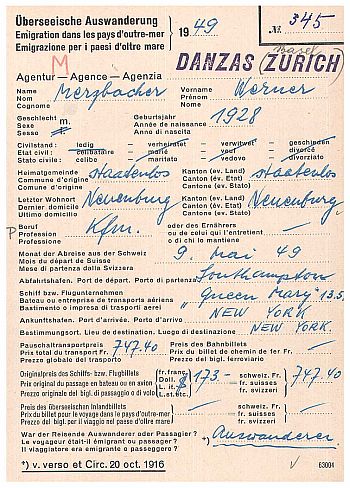 Überseeische Auswanderung
Emigration dans les pays d'outre-mer
Emigrazione per i paesi d'oltre mare
1949
№ 345
M
Basel
DANZAS (ZÜRICH)
Agentur — Agence — Agenzia
Name
Nom
Cognome
Merzbacher
Vorname
Prénom
Nome
Werner
Geschlecht
Sexe
Sesso
m.
Geburtsjahr
Année de naissance
Anno di nascita
1928
Civilstand: ledig — verheiratet — verwitwet — geschieden
Etat civil: célibataire — marié — veuf — divorcé
Stato civile: celibe — maritato — vedovo — divorziato
Heimatgemeinde
Commune d'origine
Comune d'origine
staatenlos
Kanton (ev. Land)
Canton (év. Etat)
Cantone (ev. Stato)
staatenlos
Letzter Wohnort
Dernier domicile
Ultimo domicilio
Neuenburg
Kanton (ev. Land)
Canton (év. Etat)
Cantone (ev. Stato)
Neuenburg
P
Beruf
Profession
Professione
Kfm.
oder des Ernährers
ou de celui qui l'entretient
o di chi lo mantiene
Monat der Abreise aus der Schweiz
Mois du départ de Suisse
Mese di partenza dalla Svizzera
9. Mai 49
Abfahrtshafen. Port de départ. Porto di partenza
Southampton
Schiff bzw. Flugunternehmen
Bateau ou entreprise de transports aériens
Bastimento o impresa di trasporti aerei
"Queen Mary" 13.5.
Ankunftshafen. Port d'arrivée. Porto d'arrivo
NEW YORK
Bestimmungsort. Lieu de destination. Luogo di destinazione
NEW YORK.
Pauschaltransportpreis
Prix total du transport Fr.
Prezzo globale del trasporto
747.40
Preis des Bahnbillets
Prix du billet de chemin de fer Fr.
Prezzo del bigl. ferroviario
Originalpreis des Schiffs- bzw. Flugbillets
Prix original du passage en bateau ou en avion
Prezzo originale del bigl. di passaggio o di volo
fr. franç.
Doll.
L. it.
L. st. etc.
173.—
schweiz. Fr.
fr. suisses
fr. svizzeri
747.40
Preis des überseeischen Inlandbillets
Prix du billet pour le voyage dans le pays d'outre-mer
Prezzo del bigl. per il viaggio nel paese d'oltre mare
schweiz. Fr.
fr. suisses
fr. svizzeri
War der Reisende Auswanderer oder Passagier?
Le voyageur était-il émigrant ou passager?
Il viaggiatore era emigrante o passeggero?
*) Auswanderer
*) v. verso et Circ. 20 oct. 1916
63004